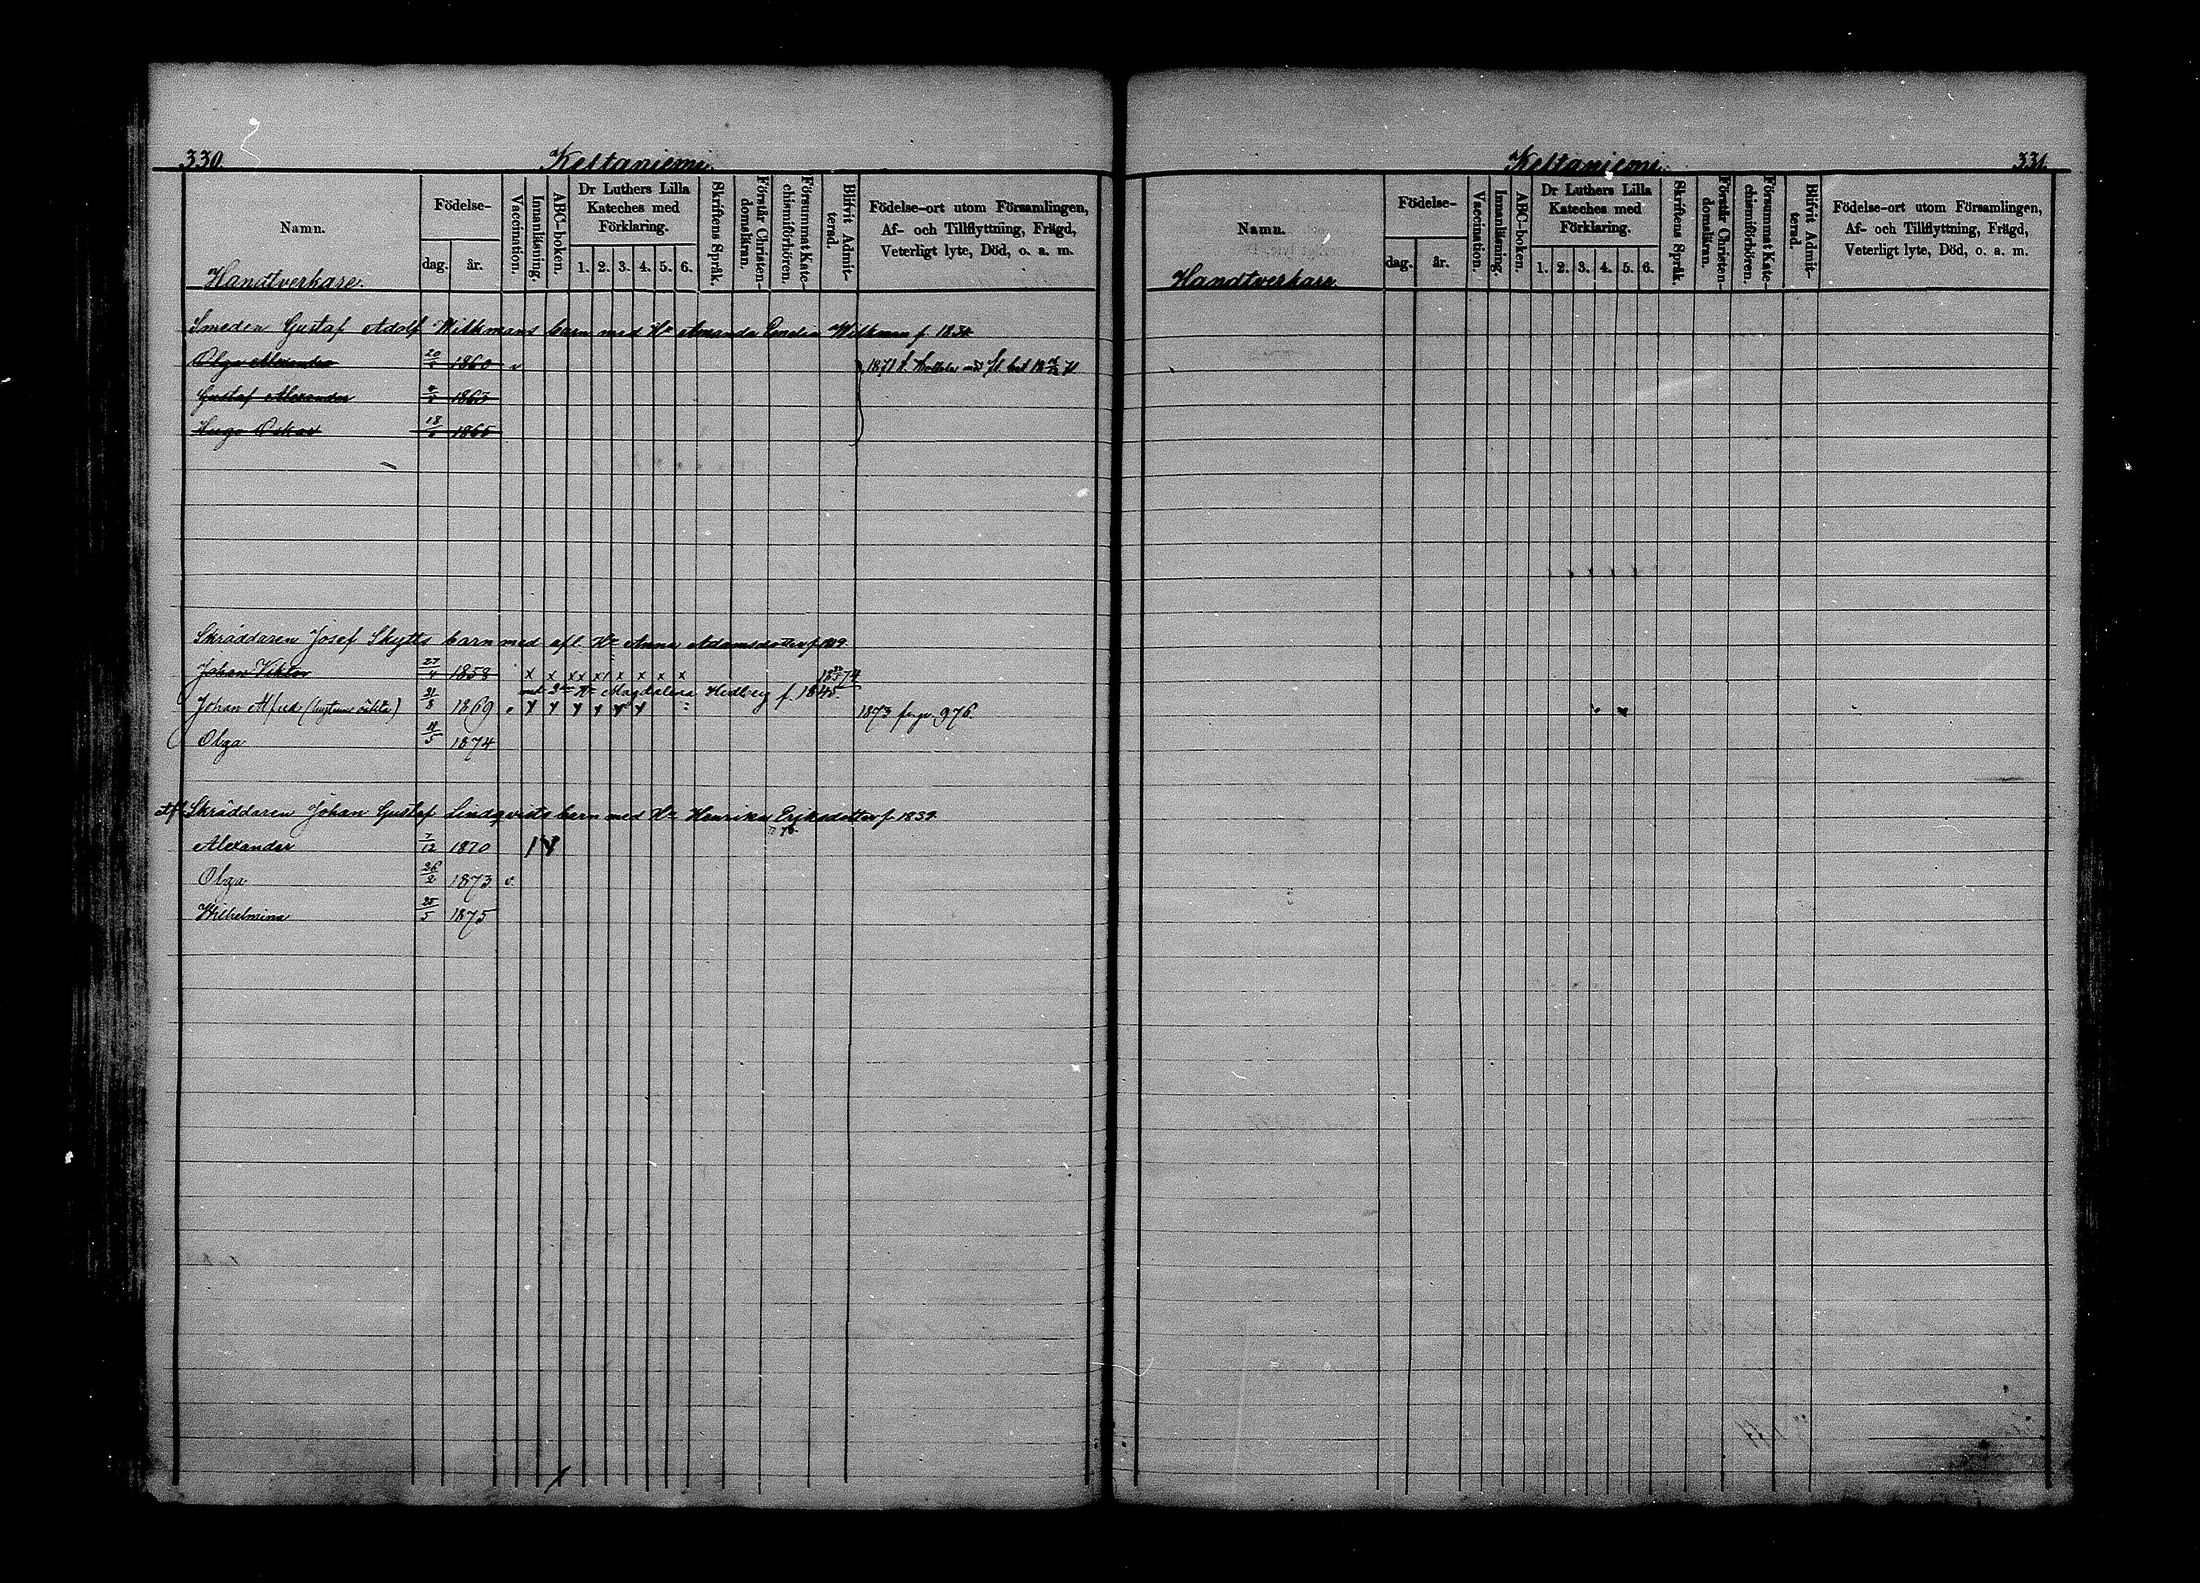 330.
Keltaniemi.
Namn.
Födelse-
dag.
år.
Vaccination.
Innanläsning.
ABC-boken.
Dr Luthers Lilla
Kateches med
Förklaring.
1. 2. 3. 4. 5. 6.
Skriftens Språk.
Förstår Christen-
domsläran.
Försummat Kate-
chismiförhören.
Blifvit Admit-
terad.
Födelse-ort utom Församlingen,
Af- och Tillflyttning, Frägd,
Veterligt lyte, Död, o. a. m.
Handtverkare.
Smeden Gustaf Adolf Wilkmans barn med Hu Amanda Wilkman f. 1834
Olga Alexandra 20 1860 v 1871 t.
Gustaf Alexander 1863
Hugo Oskar 18 1865
Skräddaren Josef Skytts barn med afl. Hu Anna Adamsdotter f.
Johan Viktor 27/4 1858 x x x x x x x x x
med 2dra Hu Magdalena Hedberg f. 1845
Johan Alfred 21/8 1869 1873 pag 976.
Olga 5 1874
Afl. Skräddaren Johan Gustaf Lindqvists barn med Hu Henrika Eriksdotter f. 1839
Alexander 7/12 1870
Olga 26/2 1873 v.
Wilhelmina 25/5 1875
Keltaniemi.
331.
Namn.
Födelse-
dag.
år.
Vaccination.
Innanläsning.
ABC-boken.
Dr Luthers Lilla
Kateches med
Förklaring.
1. 2. 3. 4. 5. 6.
Skriftens Språk.
Förstår Christen-
domsläran.
Försummat Kate-
chismiförhören.
Blifvit Admit-
terad.
Födelse-ort utom Församlingen,
Af- och Tillflyttning, Frägd,
Veterligt lyte, Död, o. a. m.
Handtverkare